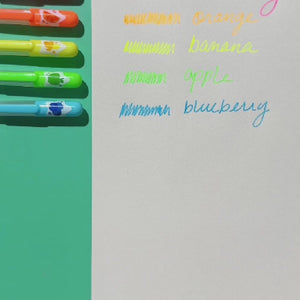 orange
banana
apple
blueberry